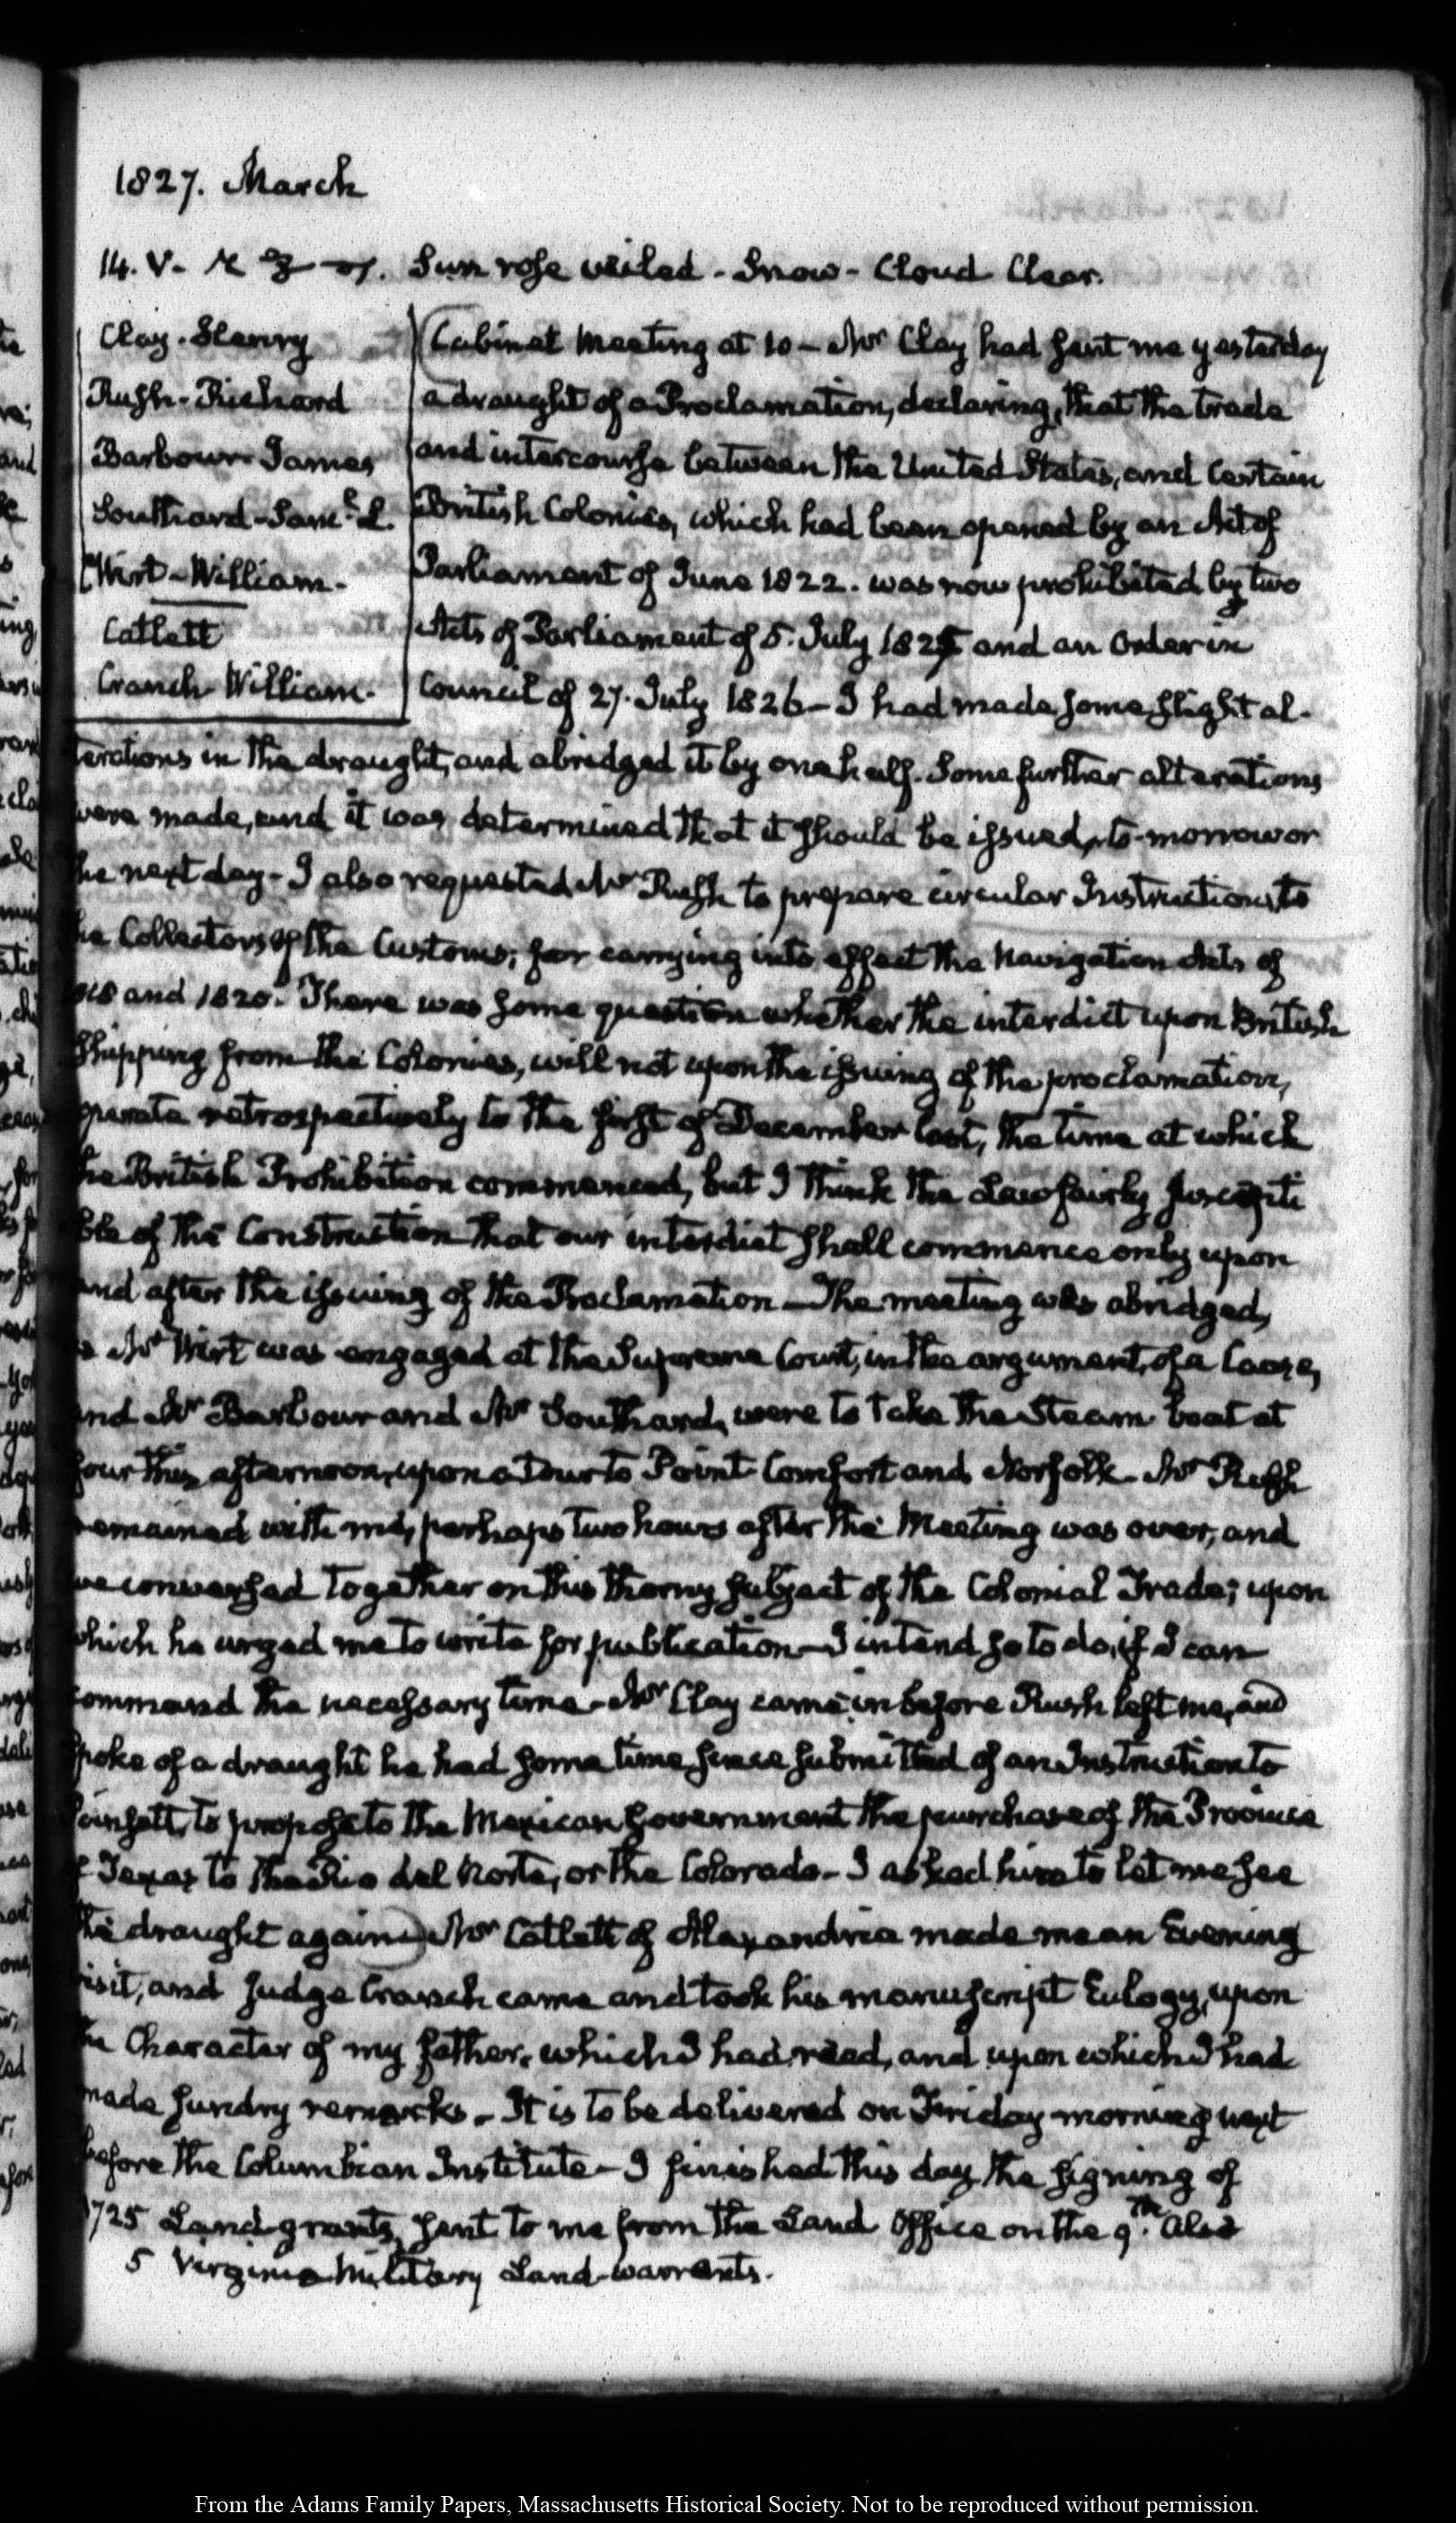 1827. March
14. V. Sun rose veiled - Snow - Cloud Clear.
Clay - Henry
Rush - Richard
Barbour James
Southard - Saml. L.
Wirt - William.
Catlett
Cranch William.
Cabinet Meeting at 10 - Mr Clay had sent me yesterday
a draught of a Proclamation, declaring, that the trade
and intercourse between the United States, and certain
British Colonies, which had been opened by an Act of
Parliament of June 1822. was now prohibited by two
Acts of Parliament of 5. July 1825 and an Order in
Council of 27. July 1826 - I had made some slight al-
terations in the draught, and abridged it by one half. Some further alterations
were made, and it was determined that it should be issued, to-morrow or
the next day - I also requested Mr Rush to prepare circular Instructions, to
the Collectors of the Customs; for carrying into effect the Navigation Acts of
1818 and 1820. There was some question whether the interdict upon British
Shipping from the Colonies, will not upon the issuing of the proclamation,
operate retrospectively to the first of December last, the time at which
the British Prohibition commenced, but I think the Law fairly suscepti
ble of the Construction that our interdict shall commence only upon
and after the issuing of the Proclamation - The meeting was abridged,
as Mr Wirt was engaged at the Supreme Court, in the argument, of a Cause,
and Mr Barbour and Mr Southard, were to take the Steam boat at
four this afternoon, upon a tour to Point Comfort and Norfolk - Mr Rush
remained with me, perhaps two hours after the Meeting was over, and
we conversed together on this thorny subject of the Colonial Trade; upon
which he urged me to write for publication - I intend so to do, if I can
command the necessary time - Mr Clay came in before Rush left me, and
spoke of a draught he had some time since submitted of an Instruction to
Poinsett, to propose to the Mexican Government the purchase of the Province
of Texas to the Rio del Norte, or the Colorado - I asked him to let me see
the draught again) Mr Catlett of Alexandria made me an Evening
visit, and Judge Cranch came and took his manuscript Eulogy, upon
the Character of my father, which I had read, and upon which I had
made sundry remarks - It is to be delivered on Friday morning next
before the Columbian Institute - I finished this day the signing of
1725 Land-grants, sent to me from the Land Office on the 9th. Also
5 Virginia Military Land-warrants.
From the Adams Family Papers, Massachusetts Historical Society. Not to be reproduced without permission.